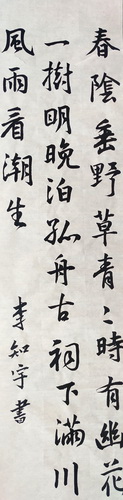 春陰垂野草青〻時有幽花
一樹明晚泊孤舟古祠下滿川
風雨看潮生
李知宇書